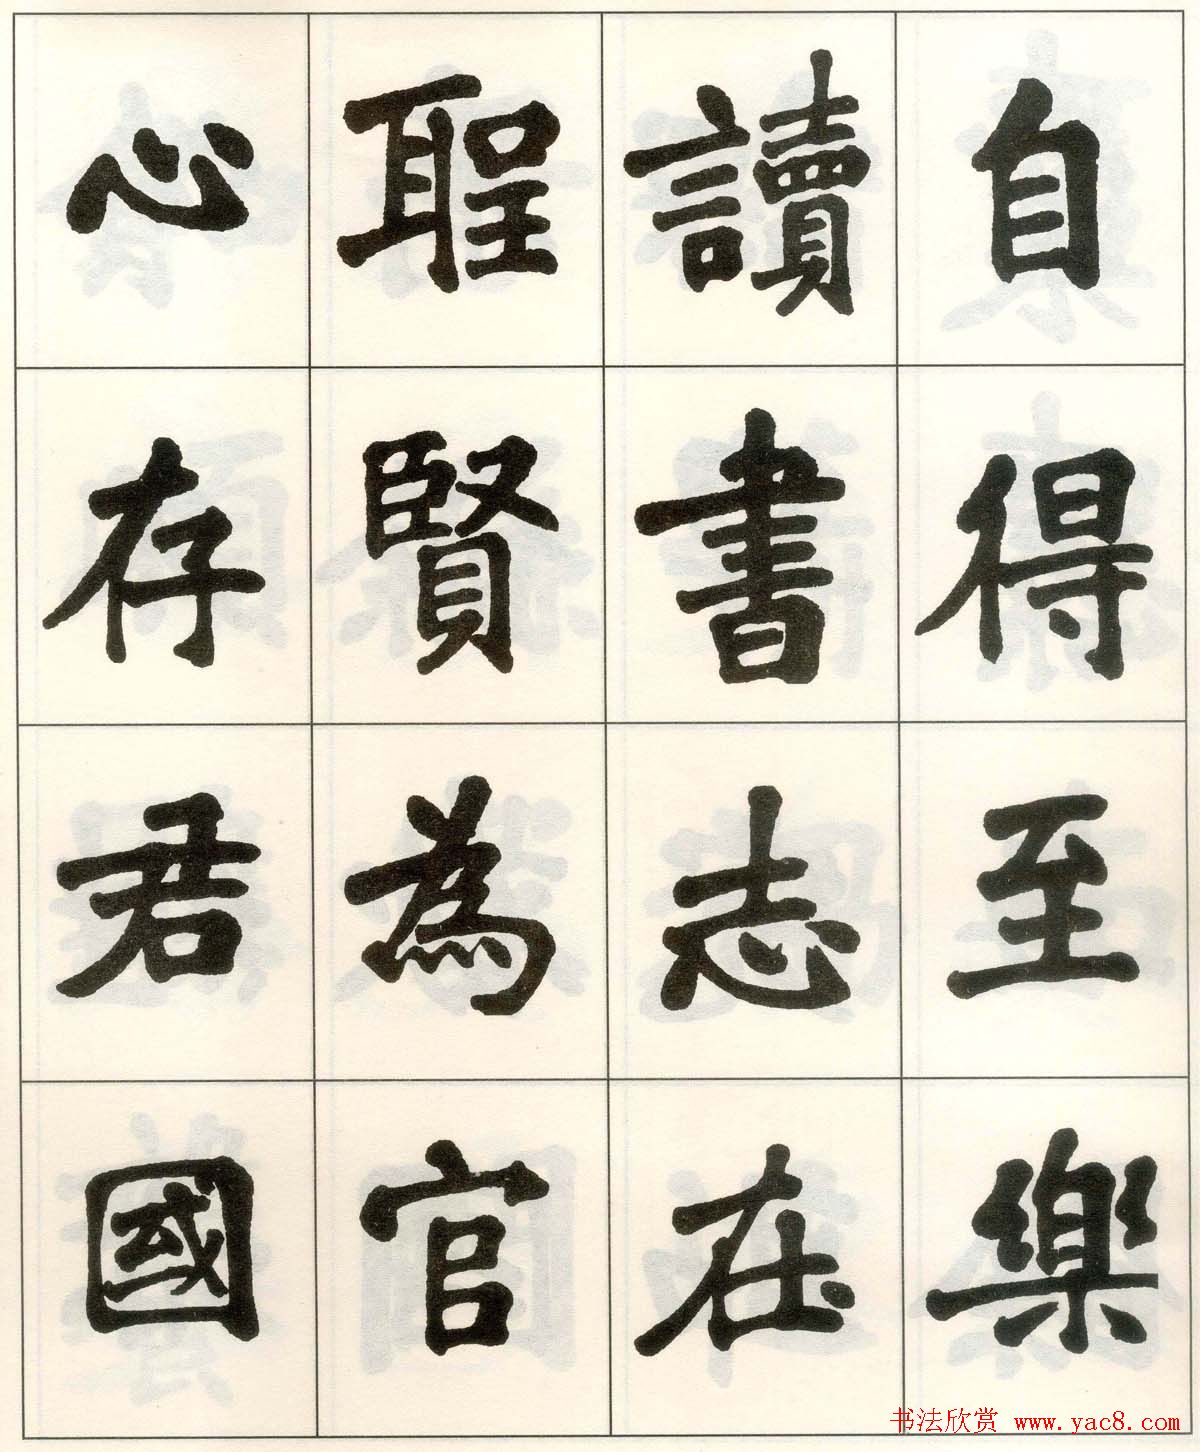 自得至樂
讀書志在
聖賢為官
心存君國
书法欣赏 www.yac8.com